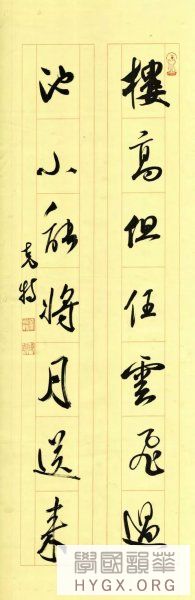 樓高但任雲飛過
池小能將月送来
學國韻華
HYGX.ORG